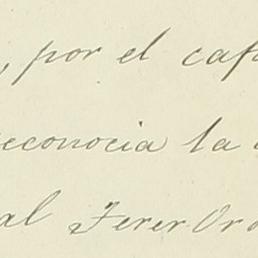 , por el caf
econocia la
al Ferer Ord